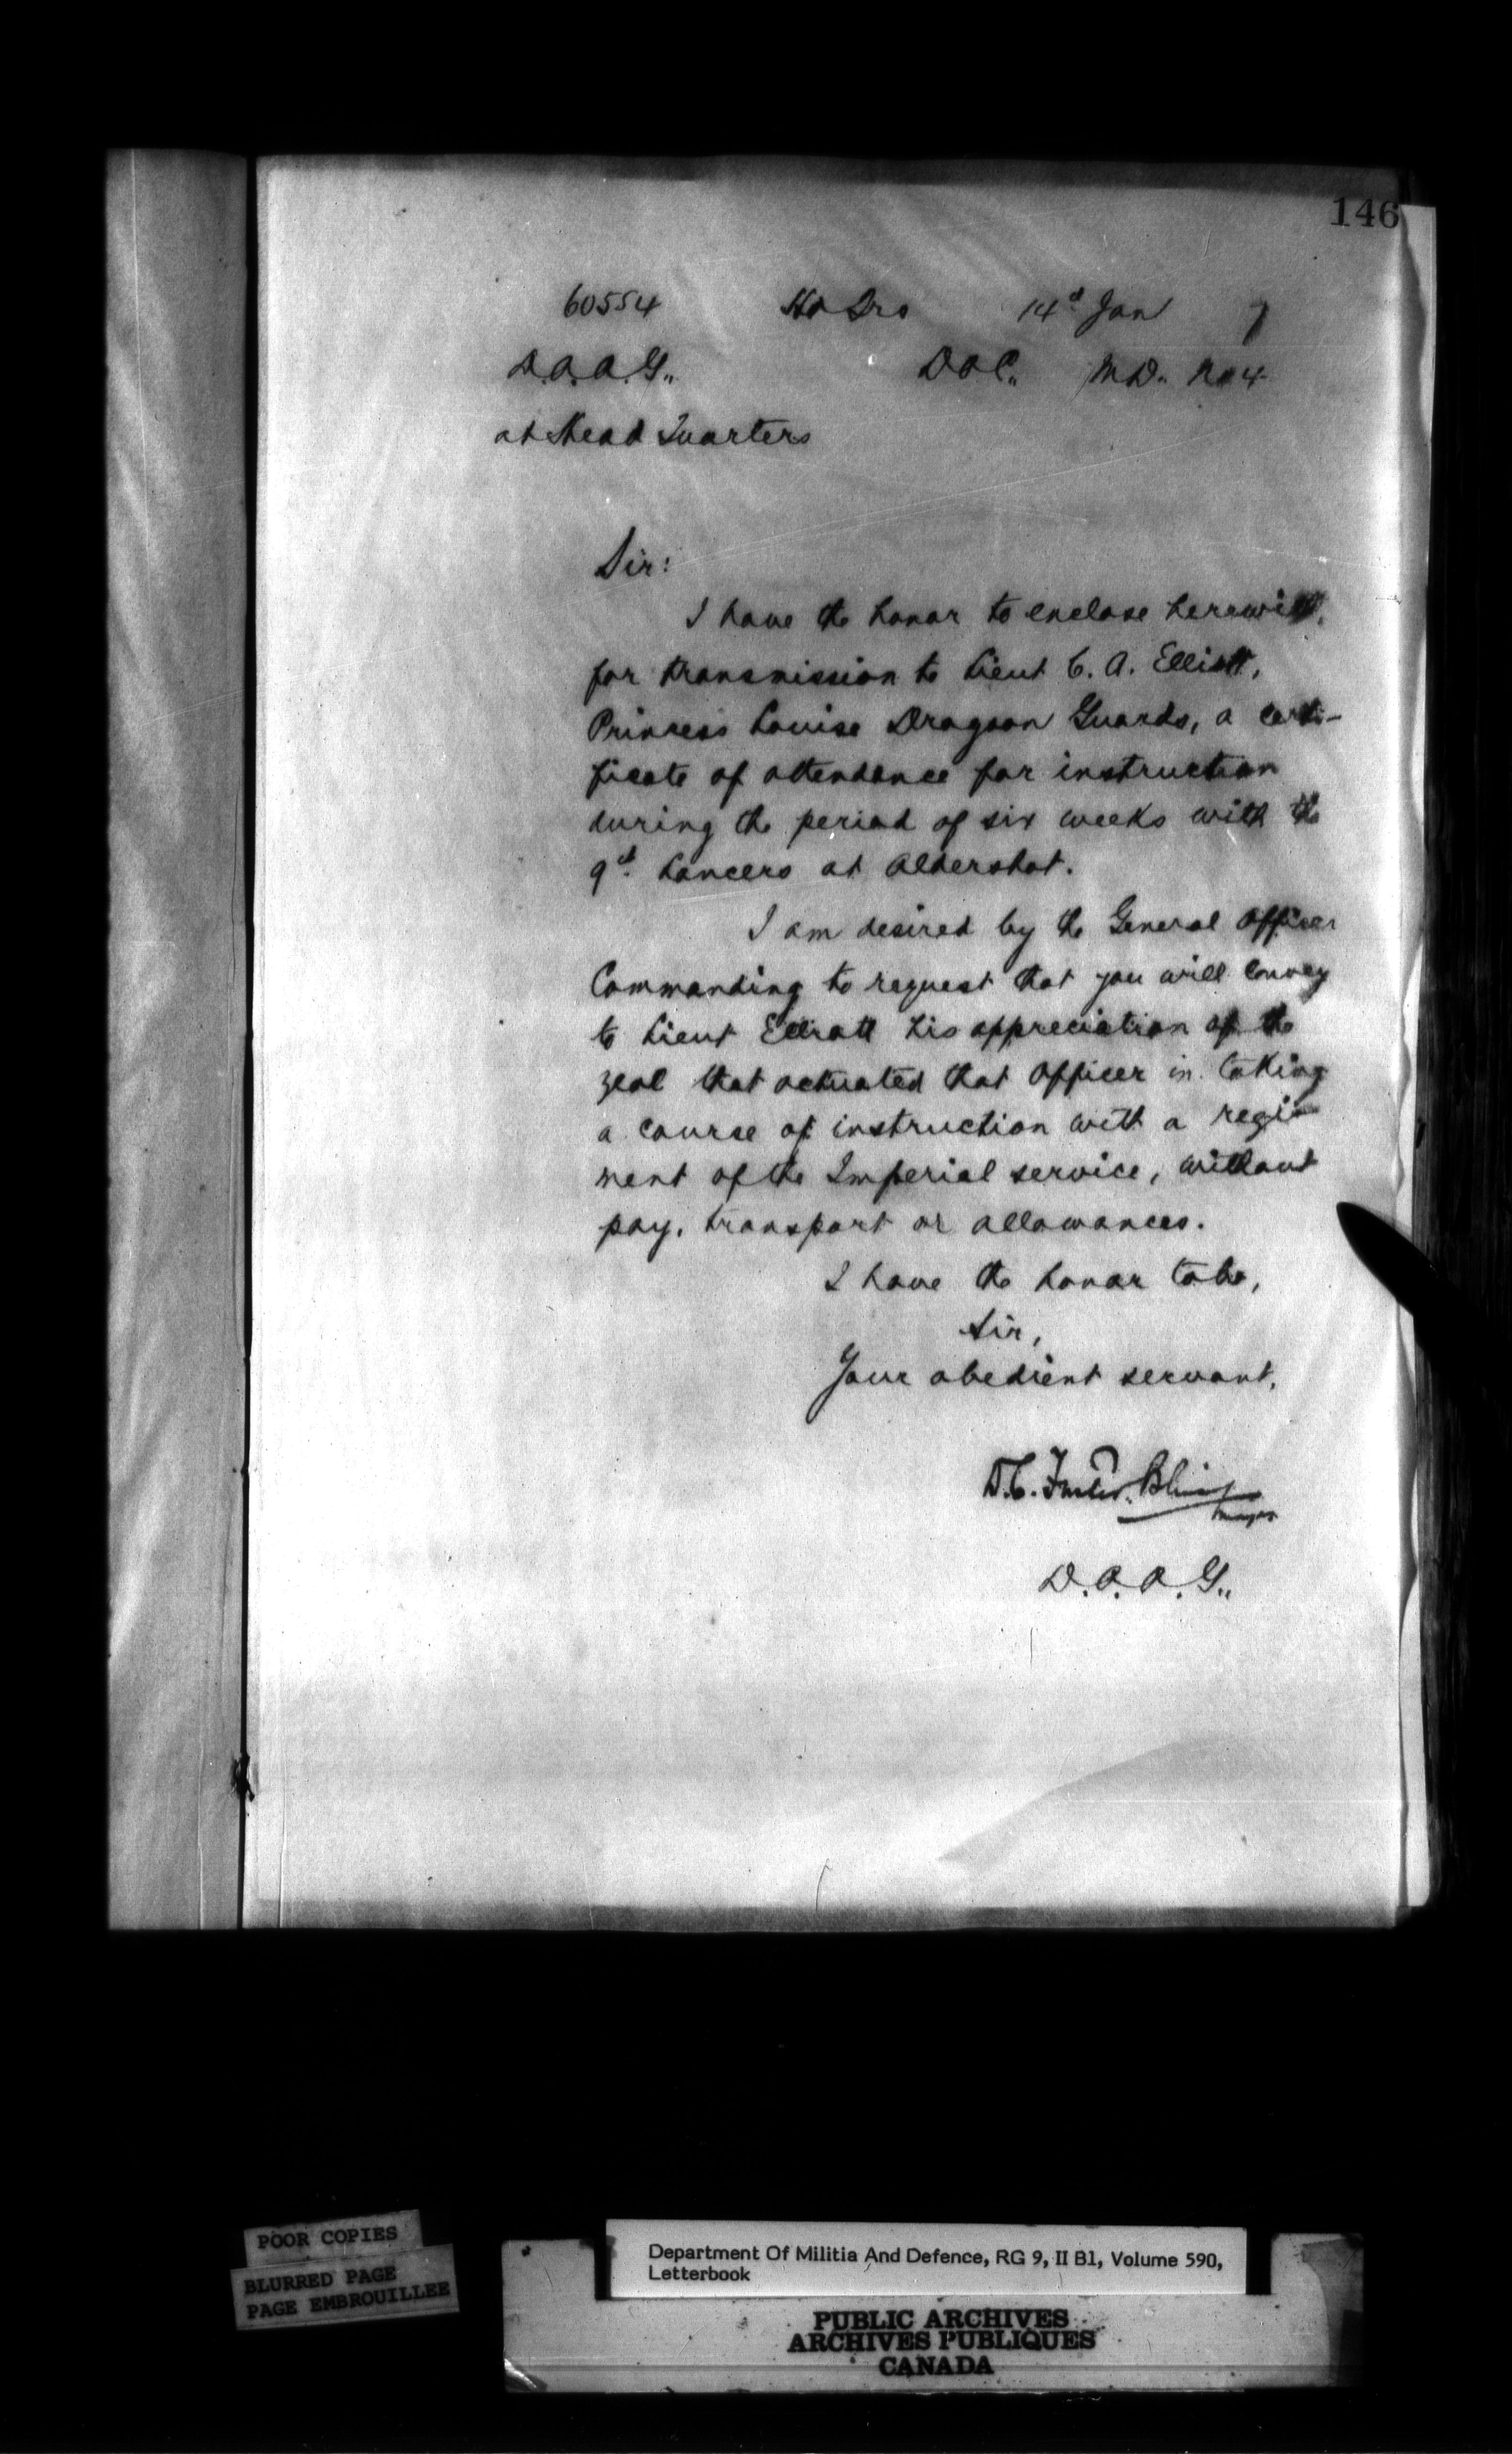 146
60554 Hd Qrs 14th Jan 7
D.A.A.G., D O C., M.D. No 4
at Head Quarters
Sir:
I have the honor to enclose herewith,
for transmission to Lieut C. A. Elliott,
Princess Louise Dragoon Guards, a certi-
ficate of attendance for instruction
during the period of six weeks with the
9th Lancers at Aldershot.
I am desired by the General Officer
Commanding to request that you will convey
to Lieut Elliott his appreciation of the
zeal that actuated that Officer in taking
a course of instruction with a regi-
ment of the Imperial service, without
pay, transport or allowances.
I have the honor to be,
Sir,
Your obedient servant,
D.C. Bliss
Major
D.A.A.G.,
POOR COPIES
BLURRED PAGE
PAGE EMBROUILLEE
Department Of Militia And Defence, RG 9, II B1, Volume 590,
Letterbook
PUBLIC ARCHIVES
ARCHIVES PUBLIQUES
CANADA